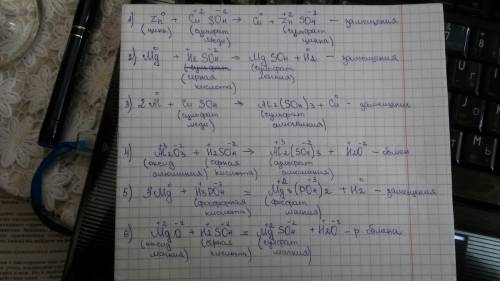 1) Zn⁰ + Cu⁺²SO₄⁻² → Cu⁰ + Zn⁺²SO₄⁻² – замещения
(цинк) (сульфат меди) (сульфат цинка)
2) Mg⁰ + H₂SO₄⁻² = MgSO₄ + H₂ – замещения
(серная кислота) (сульфат магния)
3) 2Al⁰ + CuSO₄ → Al₂(SO₄)₃ + Cu⁰ – замещения
(сульфат меди) (сульфат алюминия)
4) Al₂O₃ + H₂SO₄ → Al₂(SO₄)₃ + H₂O – обмен
(оксид алюминия) (серная кислота) (сульфат алюминия)
5) Mg⁰ + H₃PO₄ = Mg₃(PO₄)₂ + H₂⁰ – замещения
(фосфорная кислота) (фосфат магния)
6) Mg⁺²O⁻² + H₂SO₄⁻² = Mg⁺²SO₄⁻² + H₂O⁻² – р. обмена
(оксид магния) (серная кислота) (сульфат магния)